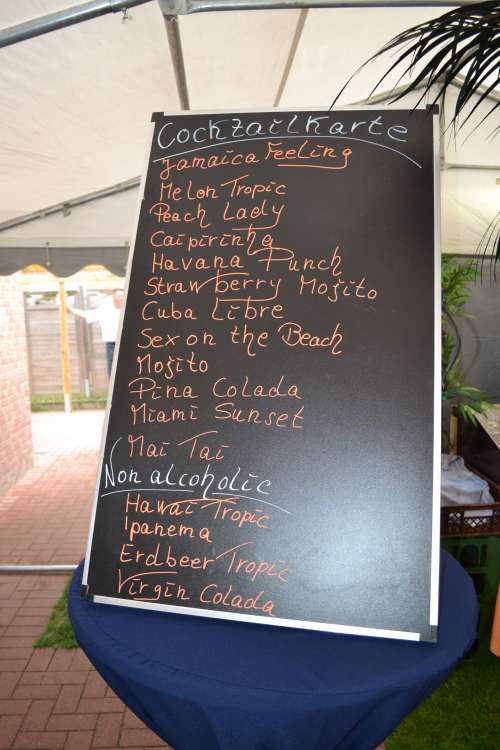 Cocktailkarte
Jamaica Feeling
Melon Tropic
Peach Lady
Caipirinha
Havana Punch
Strawberry Mojito
Cuba Libre
Sex on the Beach
Mojito
Pina Colada
Miami Sunset
Mai Tai
Non alcoholic
Hawai Tropic
Ipanema
Erdbeer Tropic
Virgin Colada